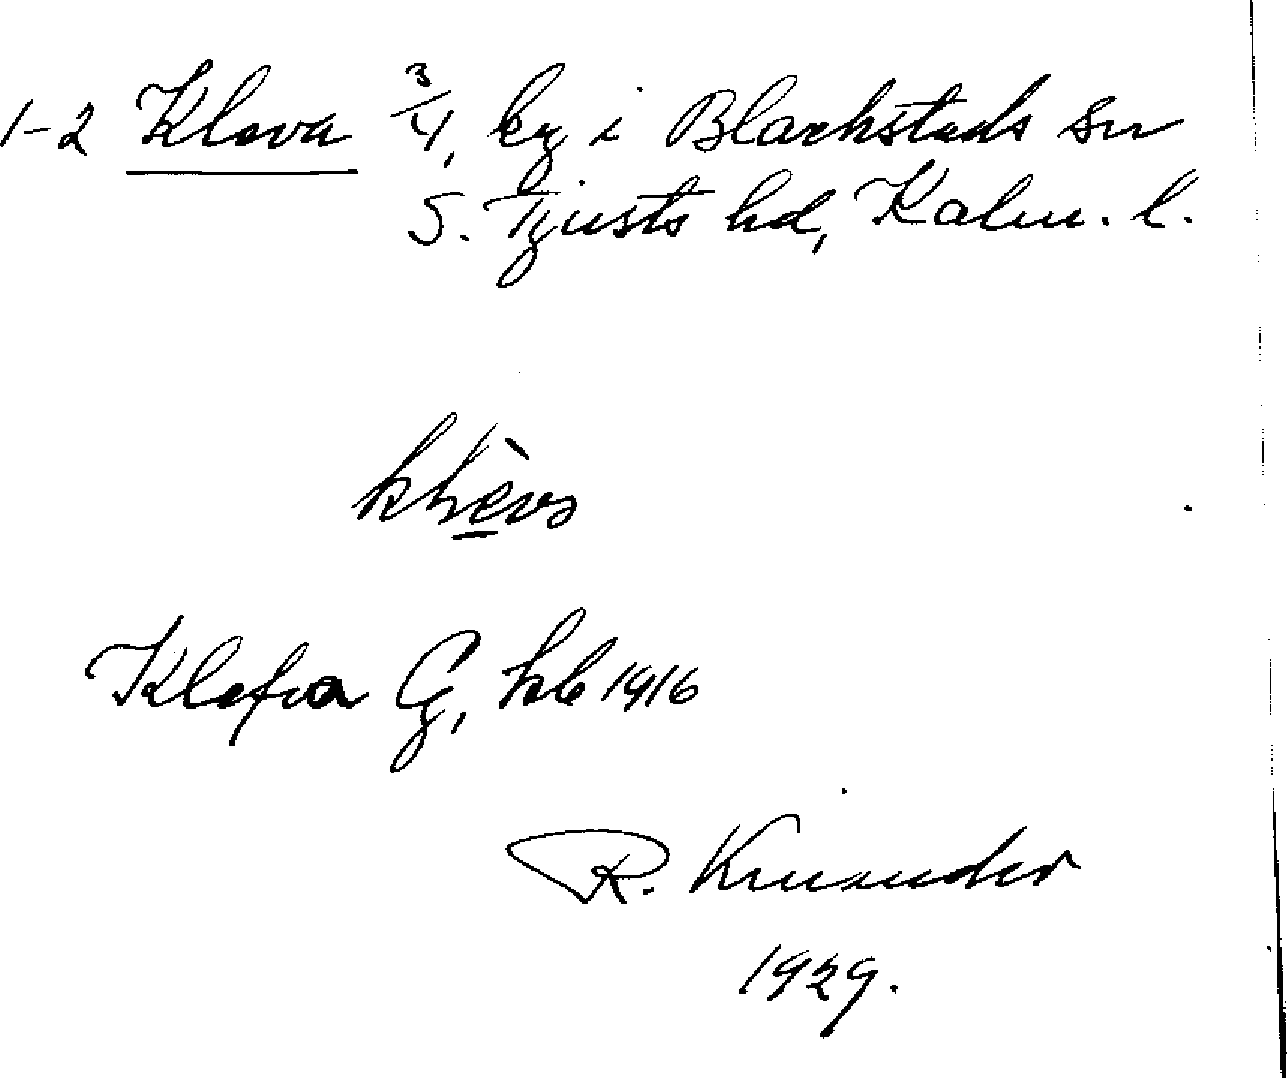 1-2 Kleva 3/4, by i Blackstads sn
S. Tjusts hd, Kalm. l.
klèva
Klefva By, hb 1916
R. Kinander
1929.